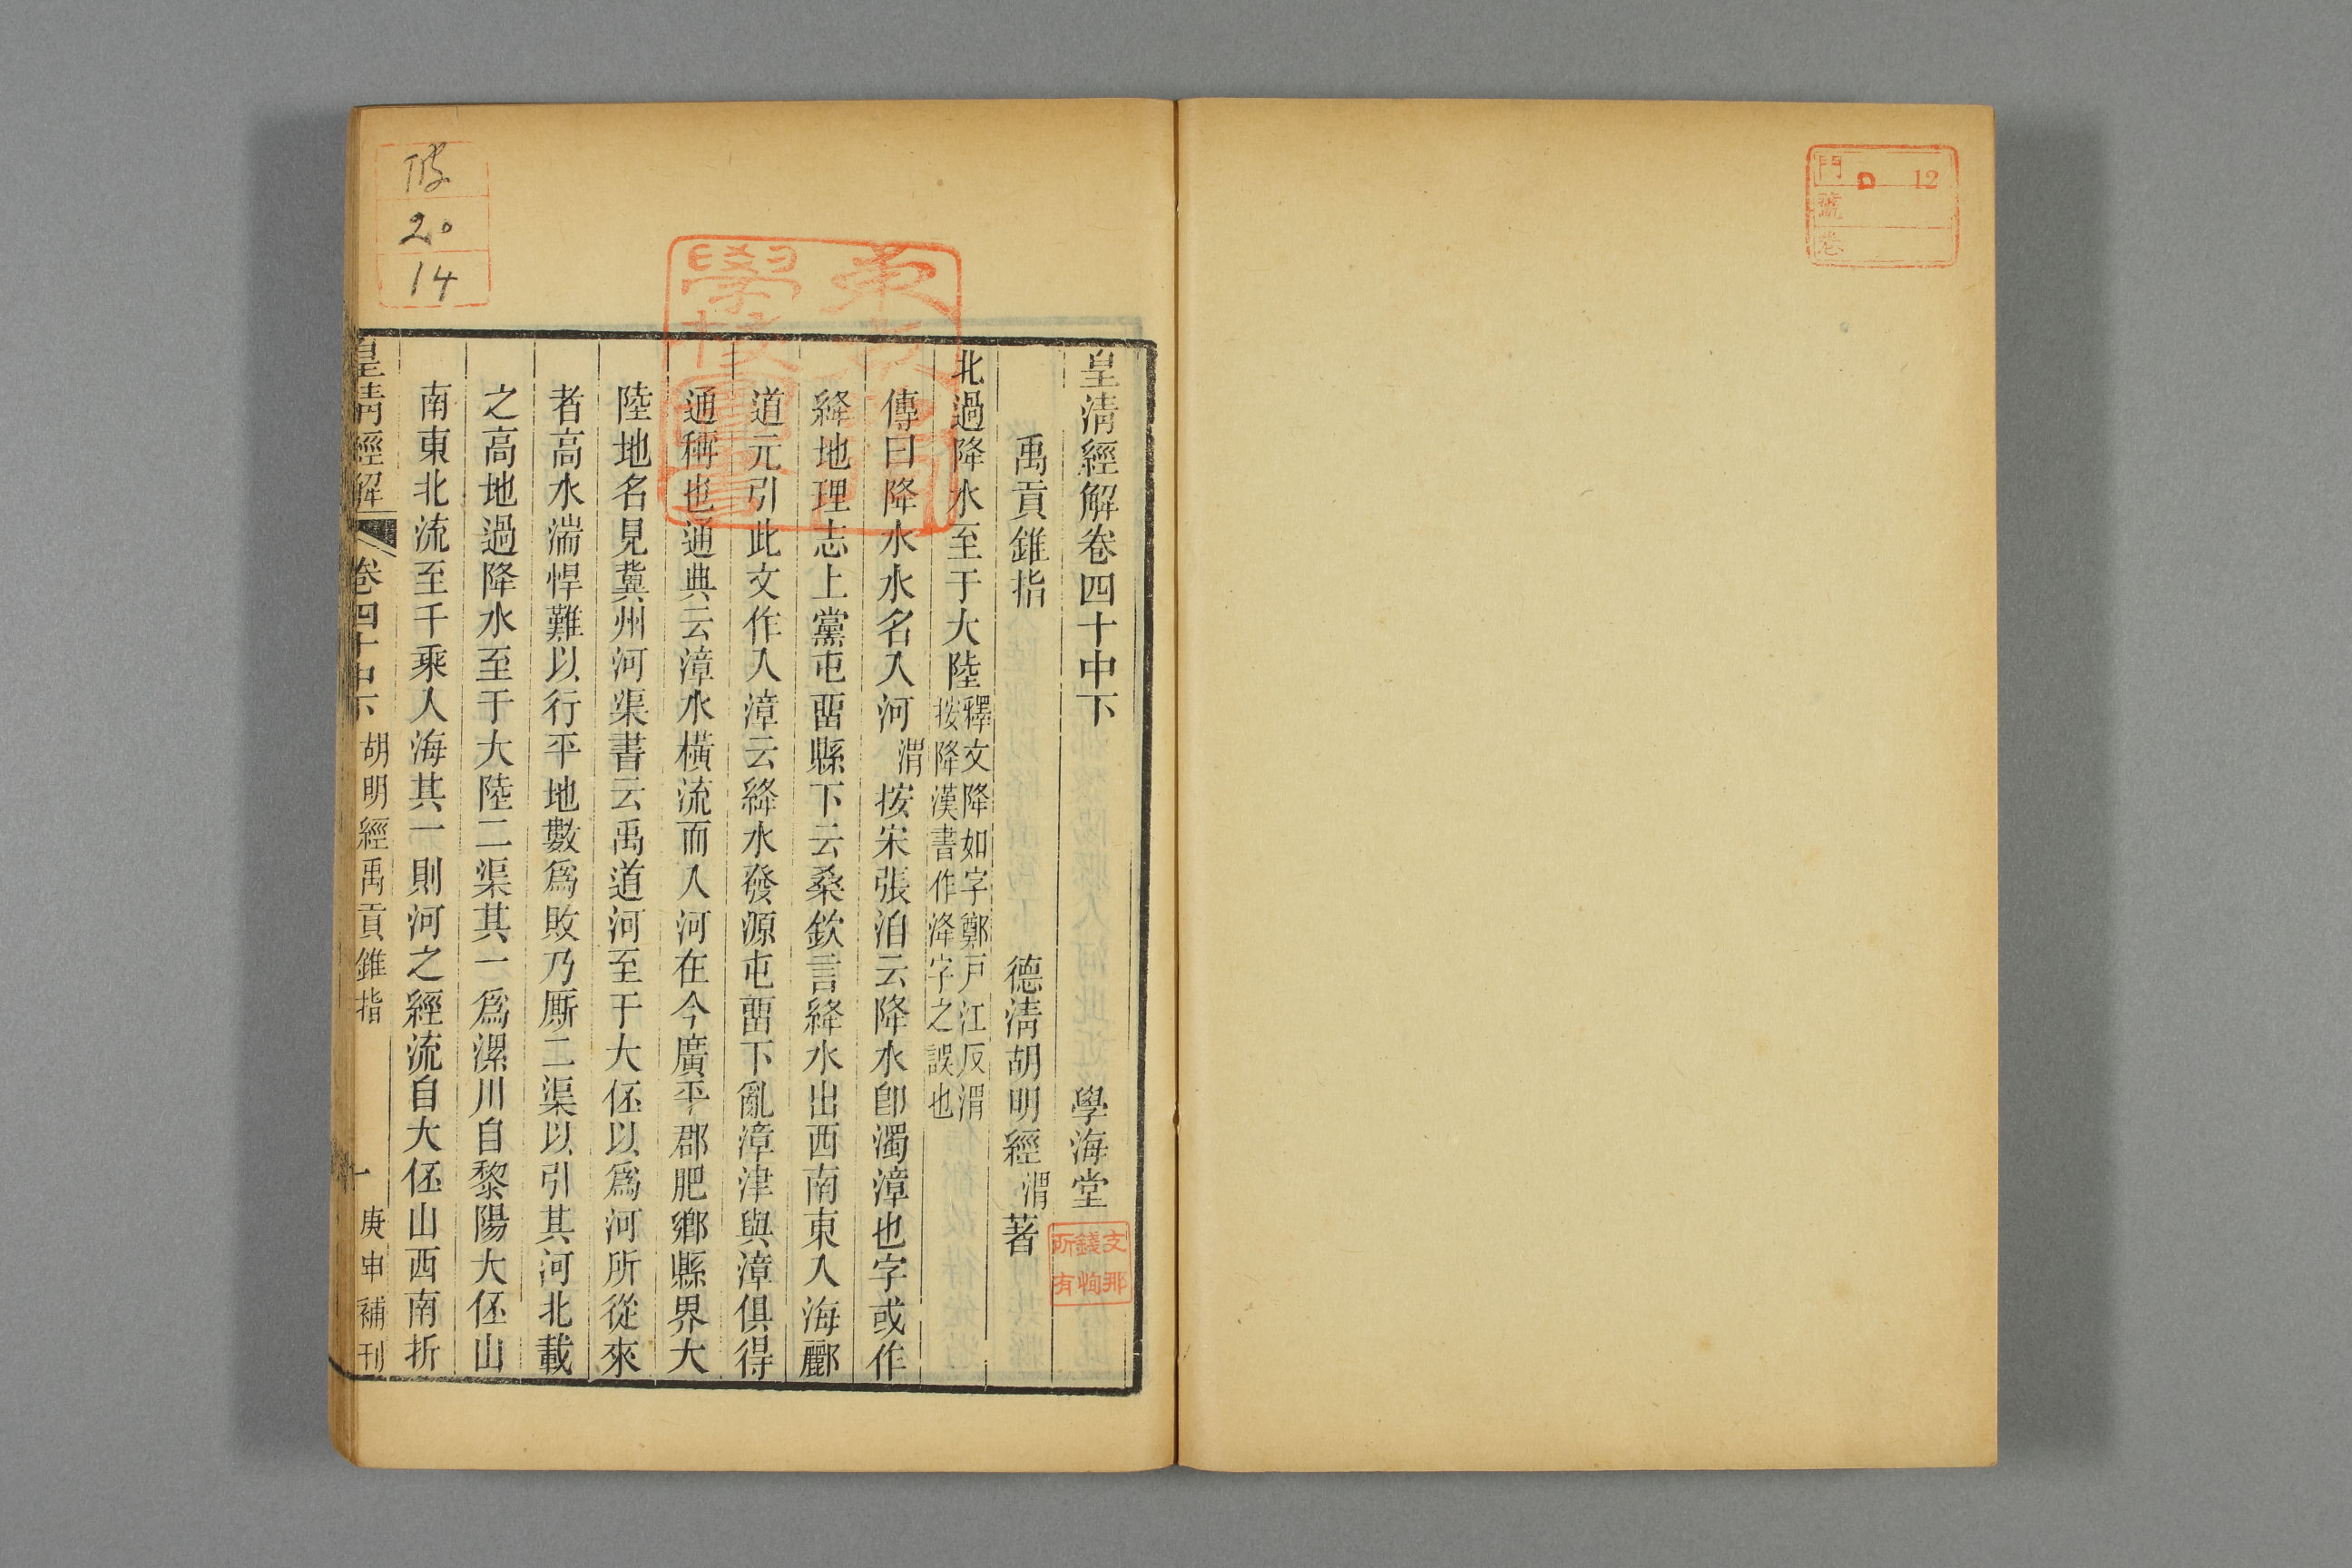 門
號
卷
D 12
皇清經解卷四十中下 學海堂
禹貢錐指 德清胡明經渭著
北過降水至于大陸釋文降如字鄭戸江反渭
按降漢書作洚字之誤也
傳曰降水水名入河 渭按宋張洎云降水卽濁漳也字或作
絳地理志上黨屯畱縣下云桑欽言絳水出西南東入海酈
道元引此文作入漳云絳水發源屯畱下亂漳津與漳俱得
通稱也通典云漳水橫流而入河在今廣平郡肥鄉縣界大
陸地名見冀州河渠書云禹道河至于大伾以爲河所從來
者高水湍悍難以行平地數爲敗乃厮二渠以引其河北載
之高地過降水至于大陸二渠其一爲漯川自黎陽大伾山
南東北流至千乘入海其一則河之經流自大伾山西南折
皇清經解 卷四十中下 胡明經禹貢錐指 一 庚申補刊
支那
錢恂
所有
20
14